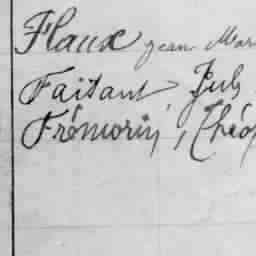 Flaux Jean Mar
Faisant Jub
Frémorin, Théop